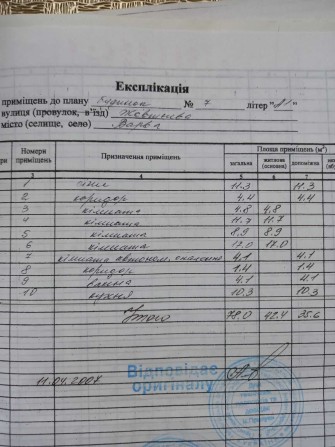 Експлікація
приміщень до плану будинка № 7 літер "А1"
вулиця (провулок, в'їзд)
місто (селище, село) Варва
Номери приміщень Призначення приміщень Площа приміщень (м²)
загальна житлова (основна) допоміжна
3 4 5 6 7
1 сіни 11.3 11.3
2 коридор 4.4 4.4
3 кімната 4.8 4.8
4 кімната 11.7 11.7
5 кімната 8.9 8.9
6 кімната 17.0 17.0
7 кімната автоном. опалення 4.1 4.1
8 коридор 1.4 1.4
9 ванна 4.1 4.1
10 кухня 10.3 10.3
Итого 78.0 42.4 35.6
Відповідає
оригіналу
11.04.2007